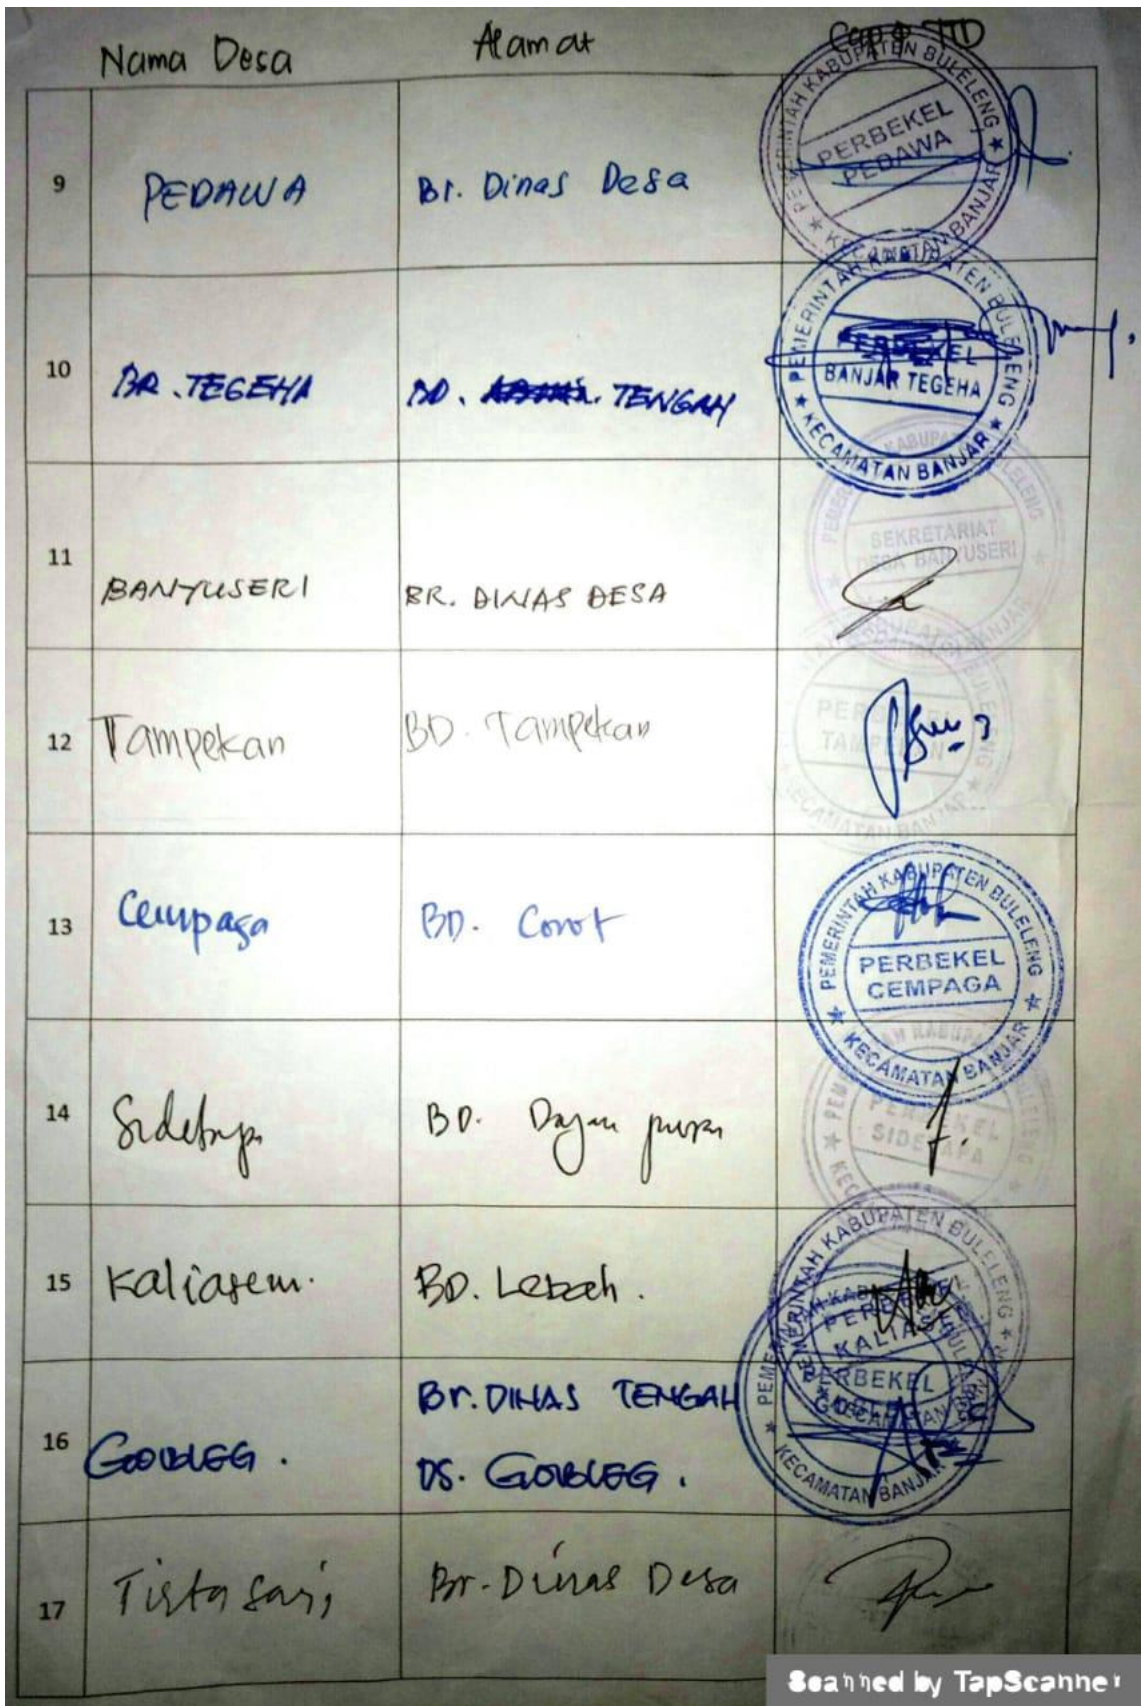 Nama Desa Alamat Cap & TTD
9 PEDAWA Br. Dinas Desa
PEMERINTAH KABUPATEN BULELENG
PERBEKEL
PEDAWA
KECAMATAN BANJAR
10 BR. TEGEHA BD. TENGAH
PEMERINTAH KABUPATEN BULELENG
PERBEKEL
BANJAR TEGEHA
KECAMATAN BANJAR
11 BANYUSERI BR. DINAS DESA
KABUPATEN BULELENG
SEKRETARIAT
DESA BANYUSERI
12 Tampekan BD. Tampekan
PERBEKEL
TAMPEKAN
KECAMATAN BANJAR
13 Cempaga BD. Corot
PEMERINTAH KABUPATEN BULELENG
PERBEKEL
CEMPAGA
KECAMATAN BANJAR
14 Sidetapa BD. Dajan pura
PERBEKEL
SIDETAPA
15 Kaliasem. BD. Lebah.
PEMERINTAH KABUPATEN BULELENG
PERBEKEL
KALIASEM
16 GOBLEG. Br. DINAS TENGAH
DS. GOBLEG.
PERBEKEL
GOBLEG
KECAMATAN BANJAR
17 Tirtasari Br. Dinas Desa
Scanned by TapScanner